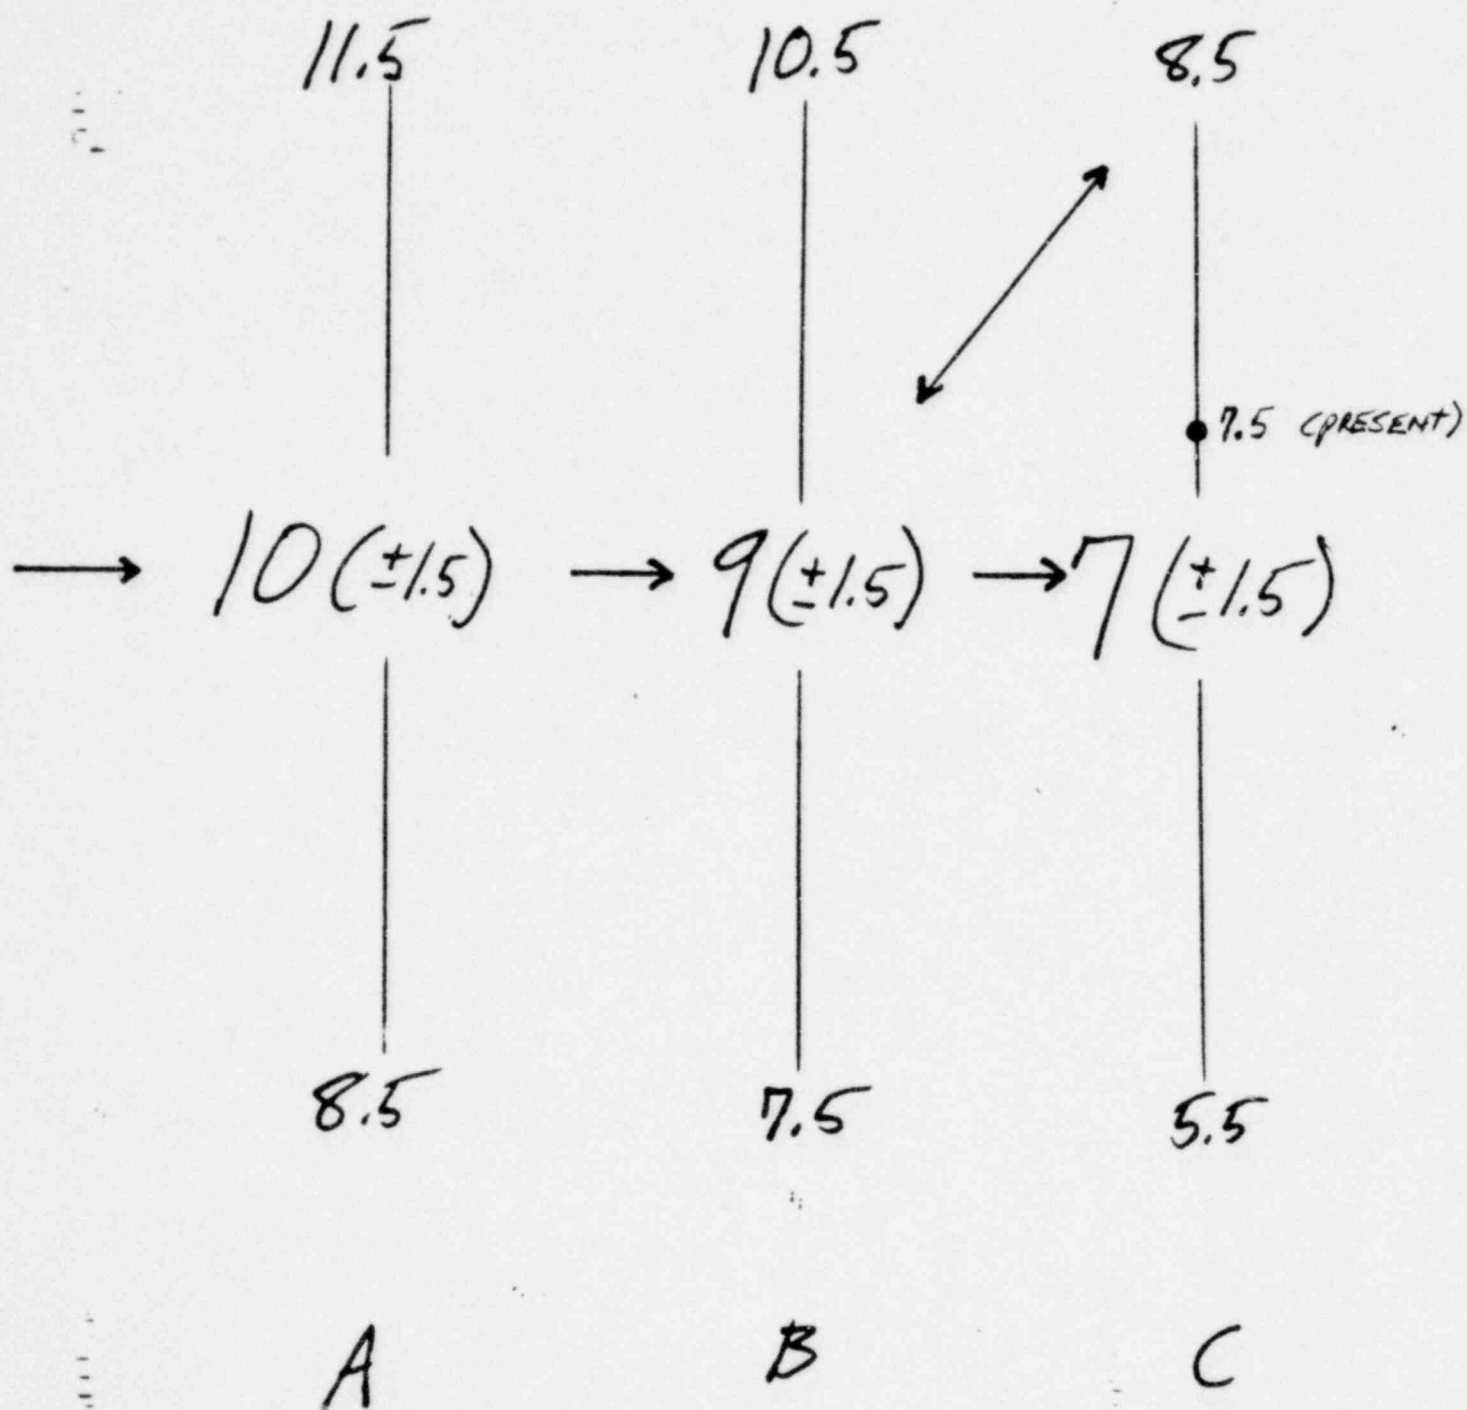 11.5 10.5 8.5
7.5 (PRESENT)
→ 10 (±1.5) → 9 (±1.5) → 7 (±1.5)
8.5 7.5 5.5
A B C